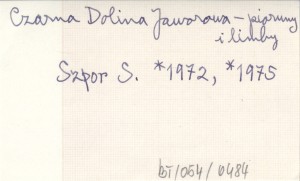 Czarna Dolina Jaworowa – pipruny
i limby
Szpor S. *1972, *1975
bT/054/0484